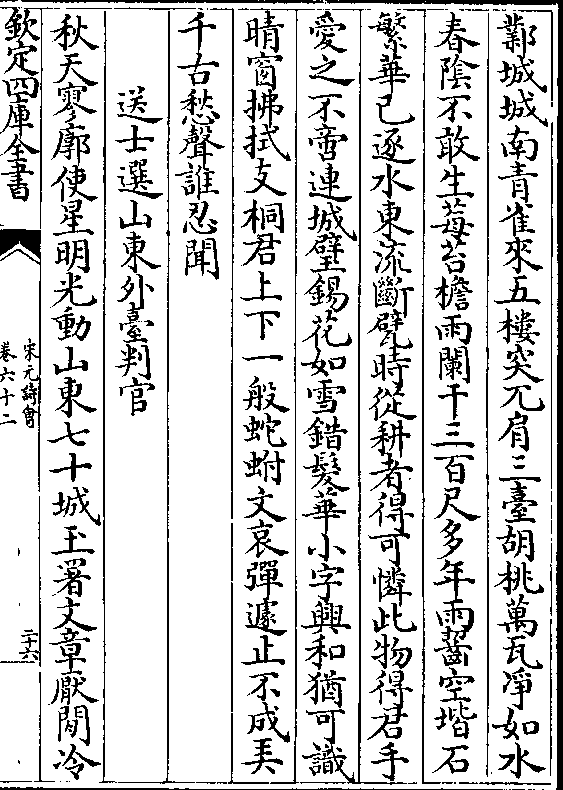 鄴城城南青雀來五樓突兀肩三臺胡桃萬瓦凈如水
春陰不敢生莓苔檐雨闌干三百尺多年雨齧空堦石
繁華已逐水東流斷甓時從耕者得可憐此物得君手
愛之不啻連城璧錫花如雪錯髮華小字興和猶可識
晴窗拂拭支桐君上下一般蛇蚹文哀彈遽止不成弄
千古愁聲誰忍聞
送士選山東外臺判官
秋天寥廓使星明光動山東七十城玉署文章厭閒冷
欽定四庫全書
宋元詩會
卷六十二
二十六